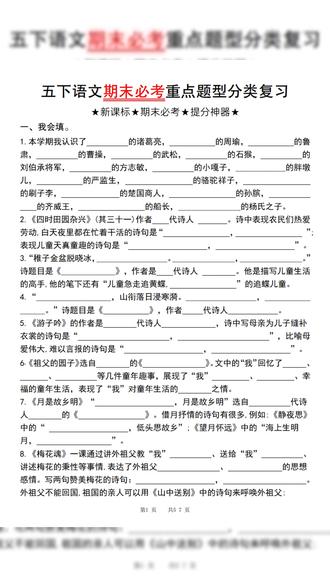 五下语文期末必考重点题型分类复习
五下语文期末必考重点题型分类复习
★新课标★期末必考★提分神器★
一、我会填。
1.本学期我认识了________的诸葛亮，________的周瑜，________的鲁
肃，________的曹操，________的武松，________的石猴，________的
刘伯承将军，________的方志敏，________的小嘎子，________的胖墩
儿，________的严监生，________的骆驼祥子，________
的刷子李，________的楚国商人，________的孙膑，________
____的齐威王，________的船长，________的杨氏之子。
2.《四时田园杂兴》(其三十一)作者____代诗人______。诗中表现农民们热爱
劳动,白天夜里都在忙着干活的诗句是“____________，____________”；
表现儿童天真童趣的诗句是“____________，____________”。
3.“稚子金盆脱晓冰，____________。____________，____________。”
诗题目是《________》，作者是____代诗人______。他是描写儿童生活
的高手,他的笔下还有“儿童急走追黄蝶，____________”的追蝶儿童。
4.“____________，山衔落日浸寒漪。____________，____________
____。”诗题目是《________》，作者____代诗人________。
5.《游子吟》的作者是________代诗人________，诗中写母亲为儿子缝补
衣裳的诗句是“____________，____________”，比喻母
爱伟大,难以言报的诗句是“____________，____________”。
6.《祖父的园子》选自______的《________》。文中的“我”回忆了____、
____、______等几件童年趣事，展现了“我”______、______、幸
福的童年生活，表现了“我”对童年生活的____之情。
7.《月是故乡明》“____________，月是故乡明”选自________代诗
人______的《________》。借月抒情的诗句有很多,例如:《静夜思》
中的“____________，低头思故乡”;《望月怀远》中的“海上生明
月，____________”。
8.《梅花魂》一课通过讲外祖父教“我”______、送给“我”________、
讲述梅花的秉性等事情,表达了外祖父________、________的思想
感情。写两句赞美梅花的诗句：____________，____________。
外祖父不能回国,祖国的亲人可以用《山中送别》中的诗句来呼唤外祖父:
第1页 共57页